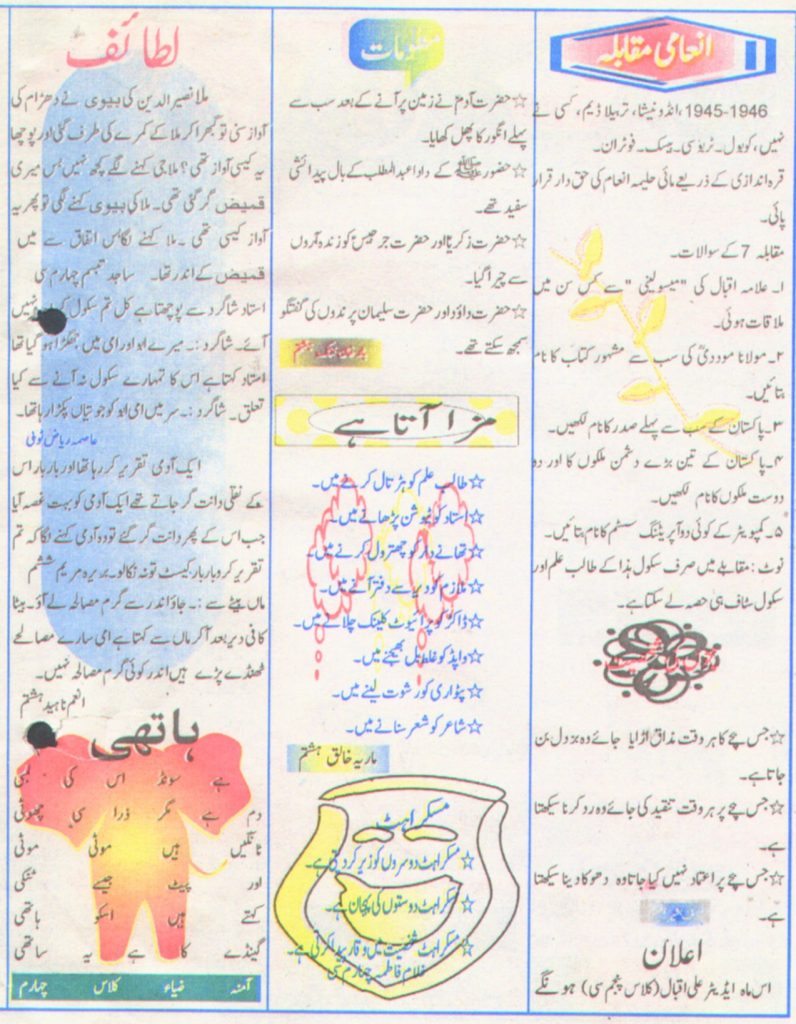 انعامی مقابلہ
1945-1946، انڈونیشا، تربیلا ڈیم، کسی نے
نہیں، کوبول۔ ٹربوسی۔ بیسک۔ فوٹران۔
قرہ اندازی کے ذریعے مائی حلیمہ انعام کی حق دار قرار
پائی۔
مقابلہ 7 کے سوالات۔
۱۔ علامہ اقبال کی "میسولینی" سے کس سن میں
ملاقات ہوئی۔
۲۔ مولانا مودودیؒ کی سب سے مشہور کتاب کا نام
بتائیں۔
۳۔ پاکستان کے سب سے پہلے صدر کا نام لکھیں۔
۴۔ پاکستان کے تین بڑے دشمن ملکوں کا اور دو
دوست ملکوں کا نام لکھیں۔
۵۔ کمپیوٹر کے کوئی دو آپریٹنگ سسٹم کا نام بتائیں۔
نوٹ: مقابلے میں صرف سکول ہذا کے طالب علم اور
سکول سٹاف ہی حصہ لے سکتا ہے۔
☆ جس بچے کا ہر وقت مذاق اڑایا جائے وہ بزدل بن
جاتا ہے۔
☆ جس بچے پر ہر وقت تنقید کی جائے وہ رد کرنا سیکھتا
ہے۔
☆ جس بچے پر اعتماد نہیں کیا جاتا وہ دھوکا دینا سیکھتا
ہے۔
اعلان
اس ماہ ایڈیٹر علی اقبال (کلاس پنجم سی) ہونگے
معلومات
☆ حضرت آدمؑ نے زمین پر آنے کے بعد سب سے
پہلے انگور کا پھل کھایا۔
☆ حضورﷺ کے دادا عبدالمطلب کے بال پیدائشی
سفید تھے۔
☆ حضرت زکریاؑ اور حضرت جرجیسؑ کو زندہ آروں
سے چیرا گیا۔
☆ حضرت داؤد اور حضرت سلیمان پرندوں کی گفتگو
سمجھ سکتے تھے۔
ہشتم
مزا آتا ہے
☆ طالب علم کو ہڑتال کرنے میں۔
☆ استاد کو ٹیوشن پڑھانے میں۔
☆ تھانے دار کو چھترول کرنے میں۔
☆ ملازم کو دیر سے دفتر آنے میں۔
☆ ڈاکٹر کو پرائیوٹ کلینک چلانے میں۔
☆ واپڈا کو غلط بل بھیجنے میں۔
☆ پٹواری کو رشوت لینے میں۔
☆ شاعر کو شعر سنانے میں۔
ماریہ خالق ہشتم
مسکراہٹ
☆ مسکراہٹ دوسروں کو زیر کر دیتی ہے۔
☆ مسکراہٹ دوستوں کی پہچان ہے۔
☆ مسکراہٹ شخصیت میں وقار پیدا کرتی ہے۔
غلام فاطمہ چہارم سی
لطائف
ملا نصیر الدین کی بیوی نے دھڑام کی
آواز سنی تو گھبرا کر ملا کے کمرے کی طرف گئی اور پوچھا
یہ کیسی آواز تھی؟ ملا جی کہنے لگے کچھ نہیں بس میری
قمیض گر گئی تھی۔ ملا کی بیوی کہنے لگی تو پھر یہ
آواز کیسی تھی۔ ملا کہنے لگا بس اتفاق سے میں
قمیض کے اندر تھا۔ ساجد تبسم چہارم سی
استاد شاگرد سے پوچھتا ہے کل تم سکول کیوں نہیں
آئے۔ شاگرد:۔ میرے ابو اور امی میں جھگڑا ہو گیا تھا
استاد کہتا ہے اس کا تمہارے سکول نہ آنے سے کیا
تعلق۔ شاگرد:۔ سر میں امی ابو کو جوتیاں پکڑا رہا تھا۔
عاصمہ ریاض
ایک آدمی تقریر کر رہا تھا اور بار بار اس
کے نقلی دانت گر جاتے تھے ایک آدمی کو بہت غصہ آیا
جب اس کے پھر دانت گر گئے تو وہ آدمی کہنے لگا کہ تم
تقریر کرو بار بار کیسٹ تو نہ نکالو۔ بریرہ مریم ششم
ماں بیٹے سے:۔ جاؤ اندر سے گرم مصالحہ لے آؤ۔ بیٹا
کافی دیر بعد آ کر ماں سے کہتا ہے امی سارے مصالحے
ٹھنڈے پڑے ہیں اندر کوئی گرم مصالحہ نہیں۔
انعم ناہید ہشتم
ہاتھی
ہے سونڈ اس کی لمبی
دم ہے مگر ذرا سی چھوٹی
ٹانگیں ہیں موٹی موٹی
اور پیٹ جیسے ٹنکی
کہتے ہیں اسکو ہاتھی
گینڈے کا ہے یہ ساتھی
آمنہ ضیاء کلاس چہارم